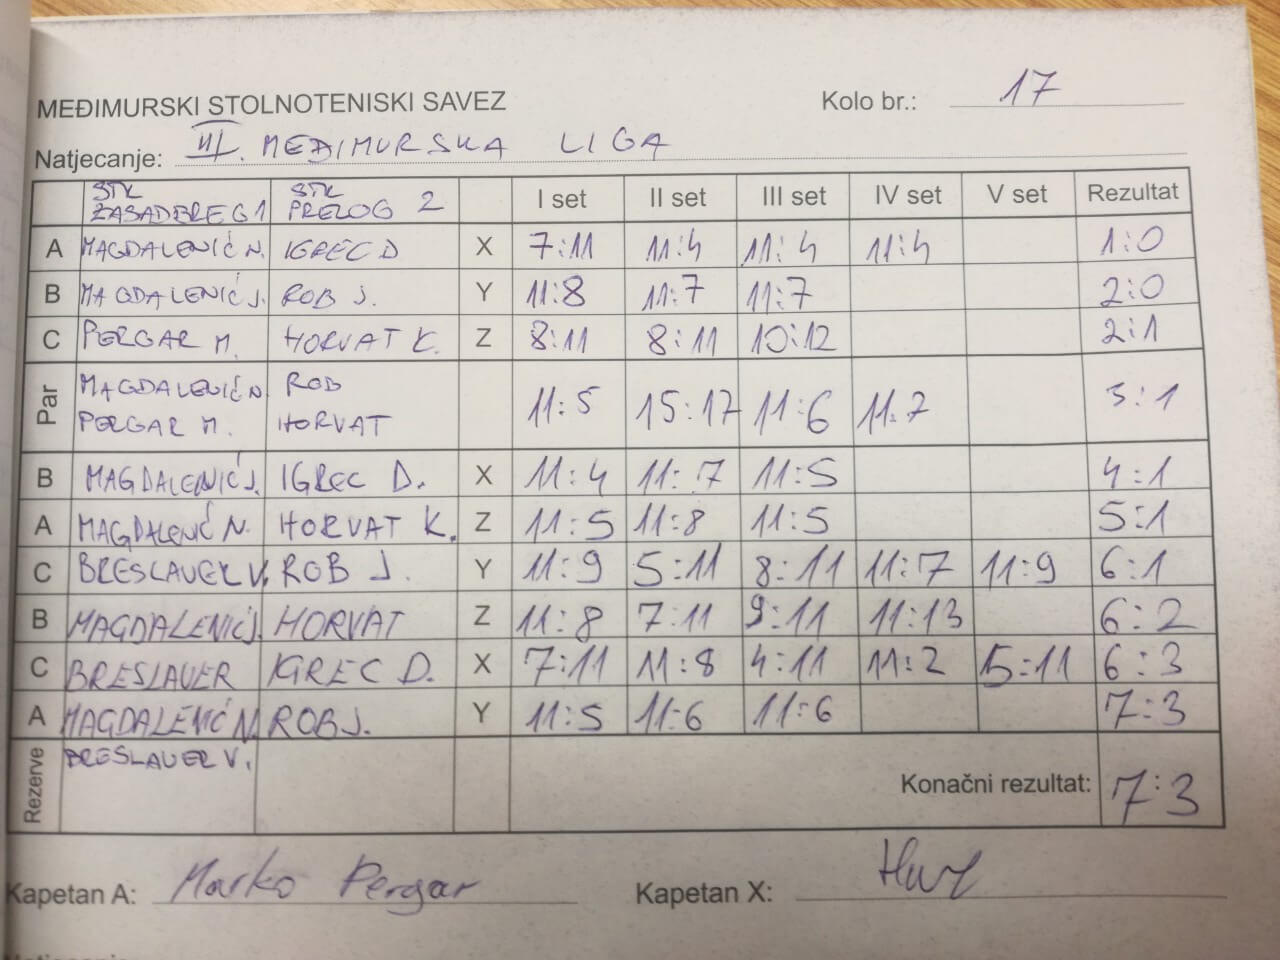 MEĐIMURSKI STOLNOTENISKI SAVEZ
Kolo br.: 17
Natjecanje: III. MEĐIMURSKA LIGA
STK ZASADBREG 1 STK PRELOG 2 I set II set III set IV set V set Rezultat
A MAGDALENIĆ N. IGREC D X 7:11 11:4 11:4 11:4 1:0
B MAGDALENIĆ J. ROB J. Y 11:8 11:7 11:7 2:0
C PERGAR M. HORVAT K. Z 8:11 8:11 10:12 2:1
Par MAGDALENIĆ N. ROB
PERGAR M. HORVAT 11:5 15:17 11:6 11:7 3:1
B MAGDALENIĆ J. IGREC D. X 11:4 11:7 11:5 4:1
A MAGDALENIĆ N. HORVAT K. Z 11:5 11:8 11:5 5:1
C BRESLAUER V. ROB J. Y 11:9 5:11 8:11 11:7 11:9 6:1
B MAGDALENIĆ J. HORVAT Z 11:8 7:11 9:11 11:13 6:2
C BRESLAUER IGREC D. X 7:11 11:8 4:11 11:2 5:11 6:3
A MAGDALENIĆ N. ROB J. Y 11:5 11:6 11:6 7:3
Rezerve BRESLAUER V.
Konačni rezultat: 7:3
Kapetan A: Marko Pergar
Kapetan X: